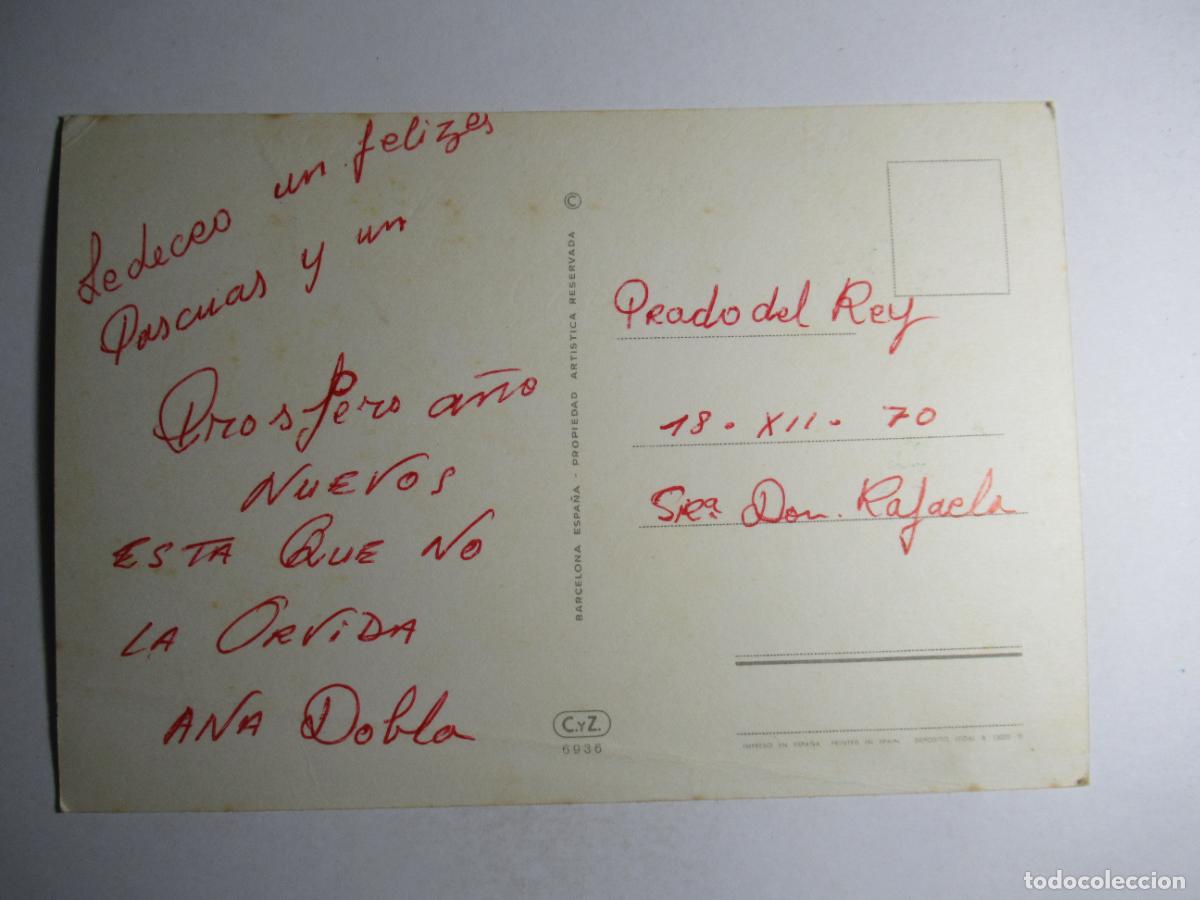 Ledeceo un felizes
Pascuas y un
Prospero año
NUEVOS
ESTA QUE NO
LA ORVIDA
ANA Dobla
©
BARCELONA ESPAÑA - PROPIEDAD ARTISTICA RESERVADA
C.YZ.
6936
Prado del Rey
18. XII. 70
SRª Don. Rafaela
IMPRESO EN ESPAÑA PRINTED IN SPAIN DEPOSITO LEGAL B.
todocoleccion